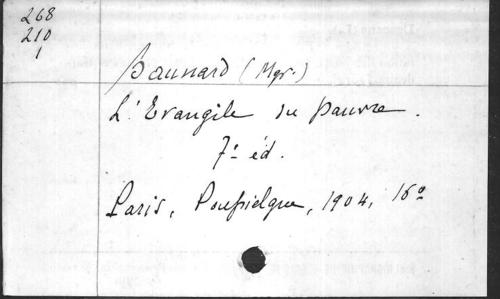 268
210
1
Baunard (Mgr.)
L'Evangile du pauvre.
7e éd.
Paris, Poussielgue, 1904, 16°